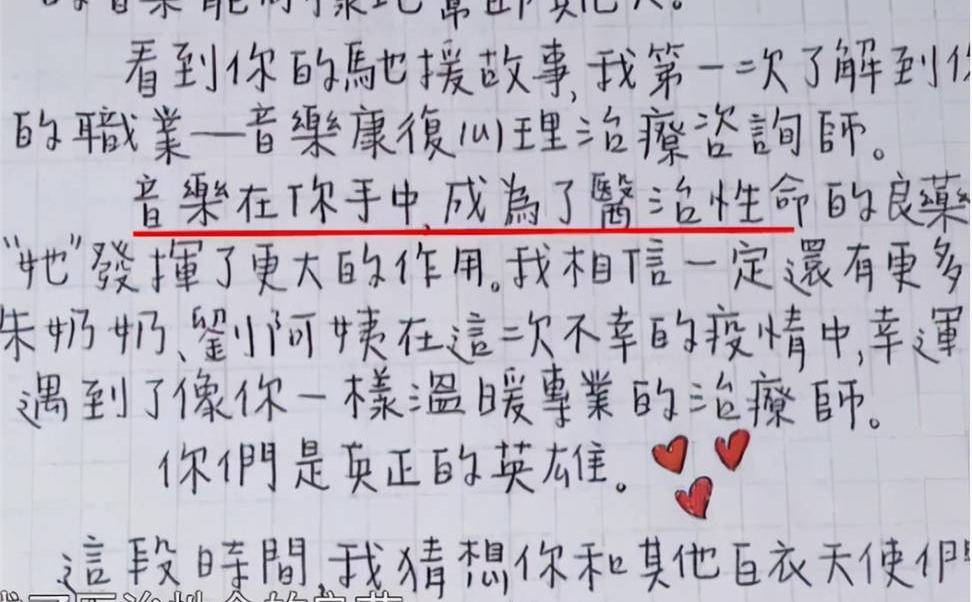 的音樂能夠像地幫助其他人。
看到你的馳援故事,我第一次了解到你
的職業—音樂康復心理治療咨詢師。
音樂在你手中,成為了醫治性命的良藥
“她”發揮了更大的作用。我相信一定還有更多
朱奶奶、劉小阿姨在這次不幸的疫情中,幸運
遇到了像你一樣溫暖專業的治療師。
你們是真正的英雄。
這段時間,我猜想你和其他白衣天使們
成了醫治性命的良藥